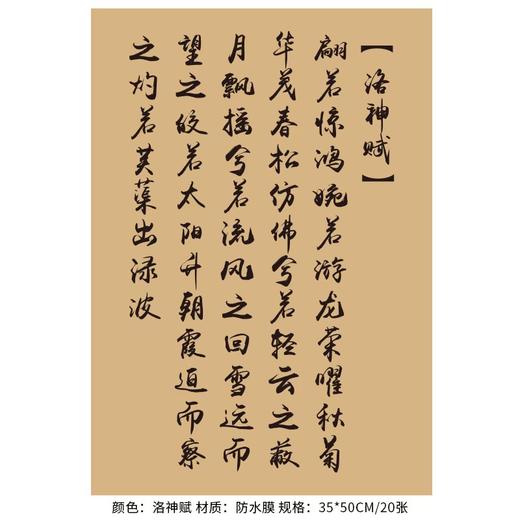 【洛神赋】
翩若惊鸿婉若游龙荣曜秋菊
华茂春松仿佛兮若轻云之蔽
月飘摇兮若流风之回雪远而
望之皎若太阳升朝霞迫而察
之灼若芙蕖出渌波
颜色：洛神赋 材质：防水膜 规格：35*50CM/20张